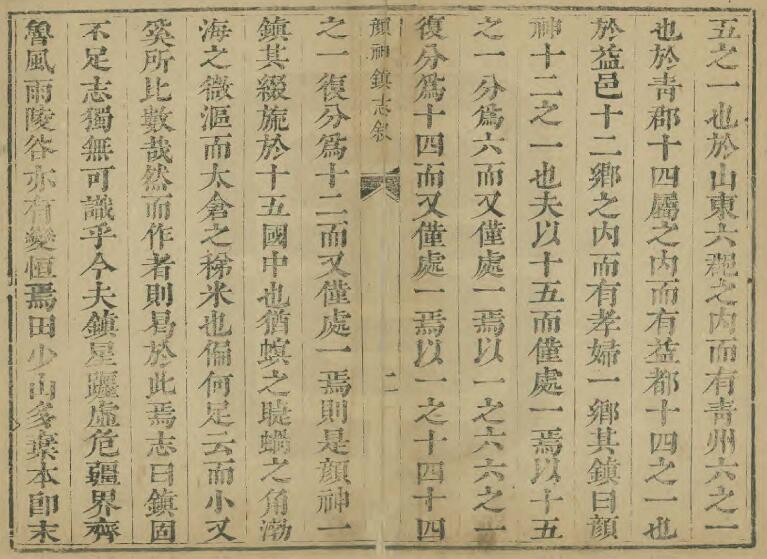 五之一也於山東六郡之内而有青州六之一
也於青郡十四屬之内而有益都十四之一也
於益邑十二鄉之内而有孝婦一鄉其鎮曰顏
神十二之一也夫以十五而僅處一焉以十五
之一分爲六而又僅處一焉以一之六六之一
復分爲十四而又僅處一焉以一之十四十四
顏神鎮志敘
二
之一復分爲十二而又僅處一焉則是顏神一
鎮其綴旒於十五國中也猶螟之睫蝸之角渤
海之微漚而太倉之稊米也偏何足云而小又
奚所比數哉然而作者則曷於此焉志曰鎮固
不足志獨無可識乎今夫鎮星躔虛危疆界齊
魯風雨陵谷亦有變恒焉田少山多棄本卽末